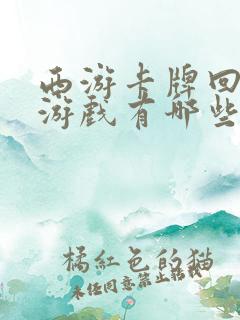 西游卡牌回
游戏有哪些
橘红色的猫
未经同意禁止转载